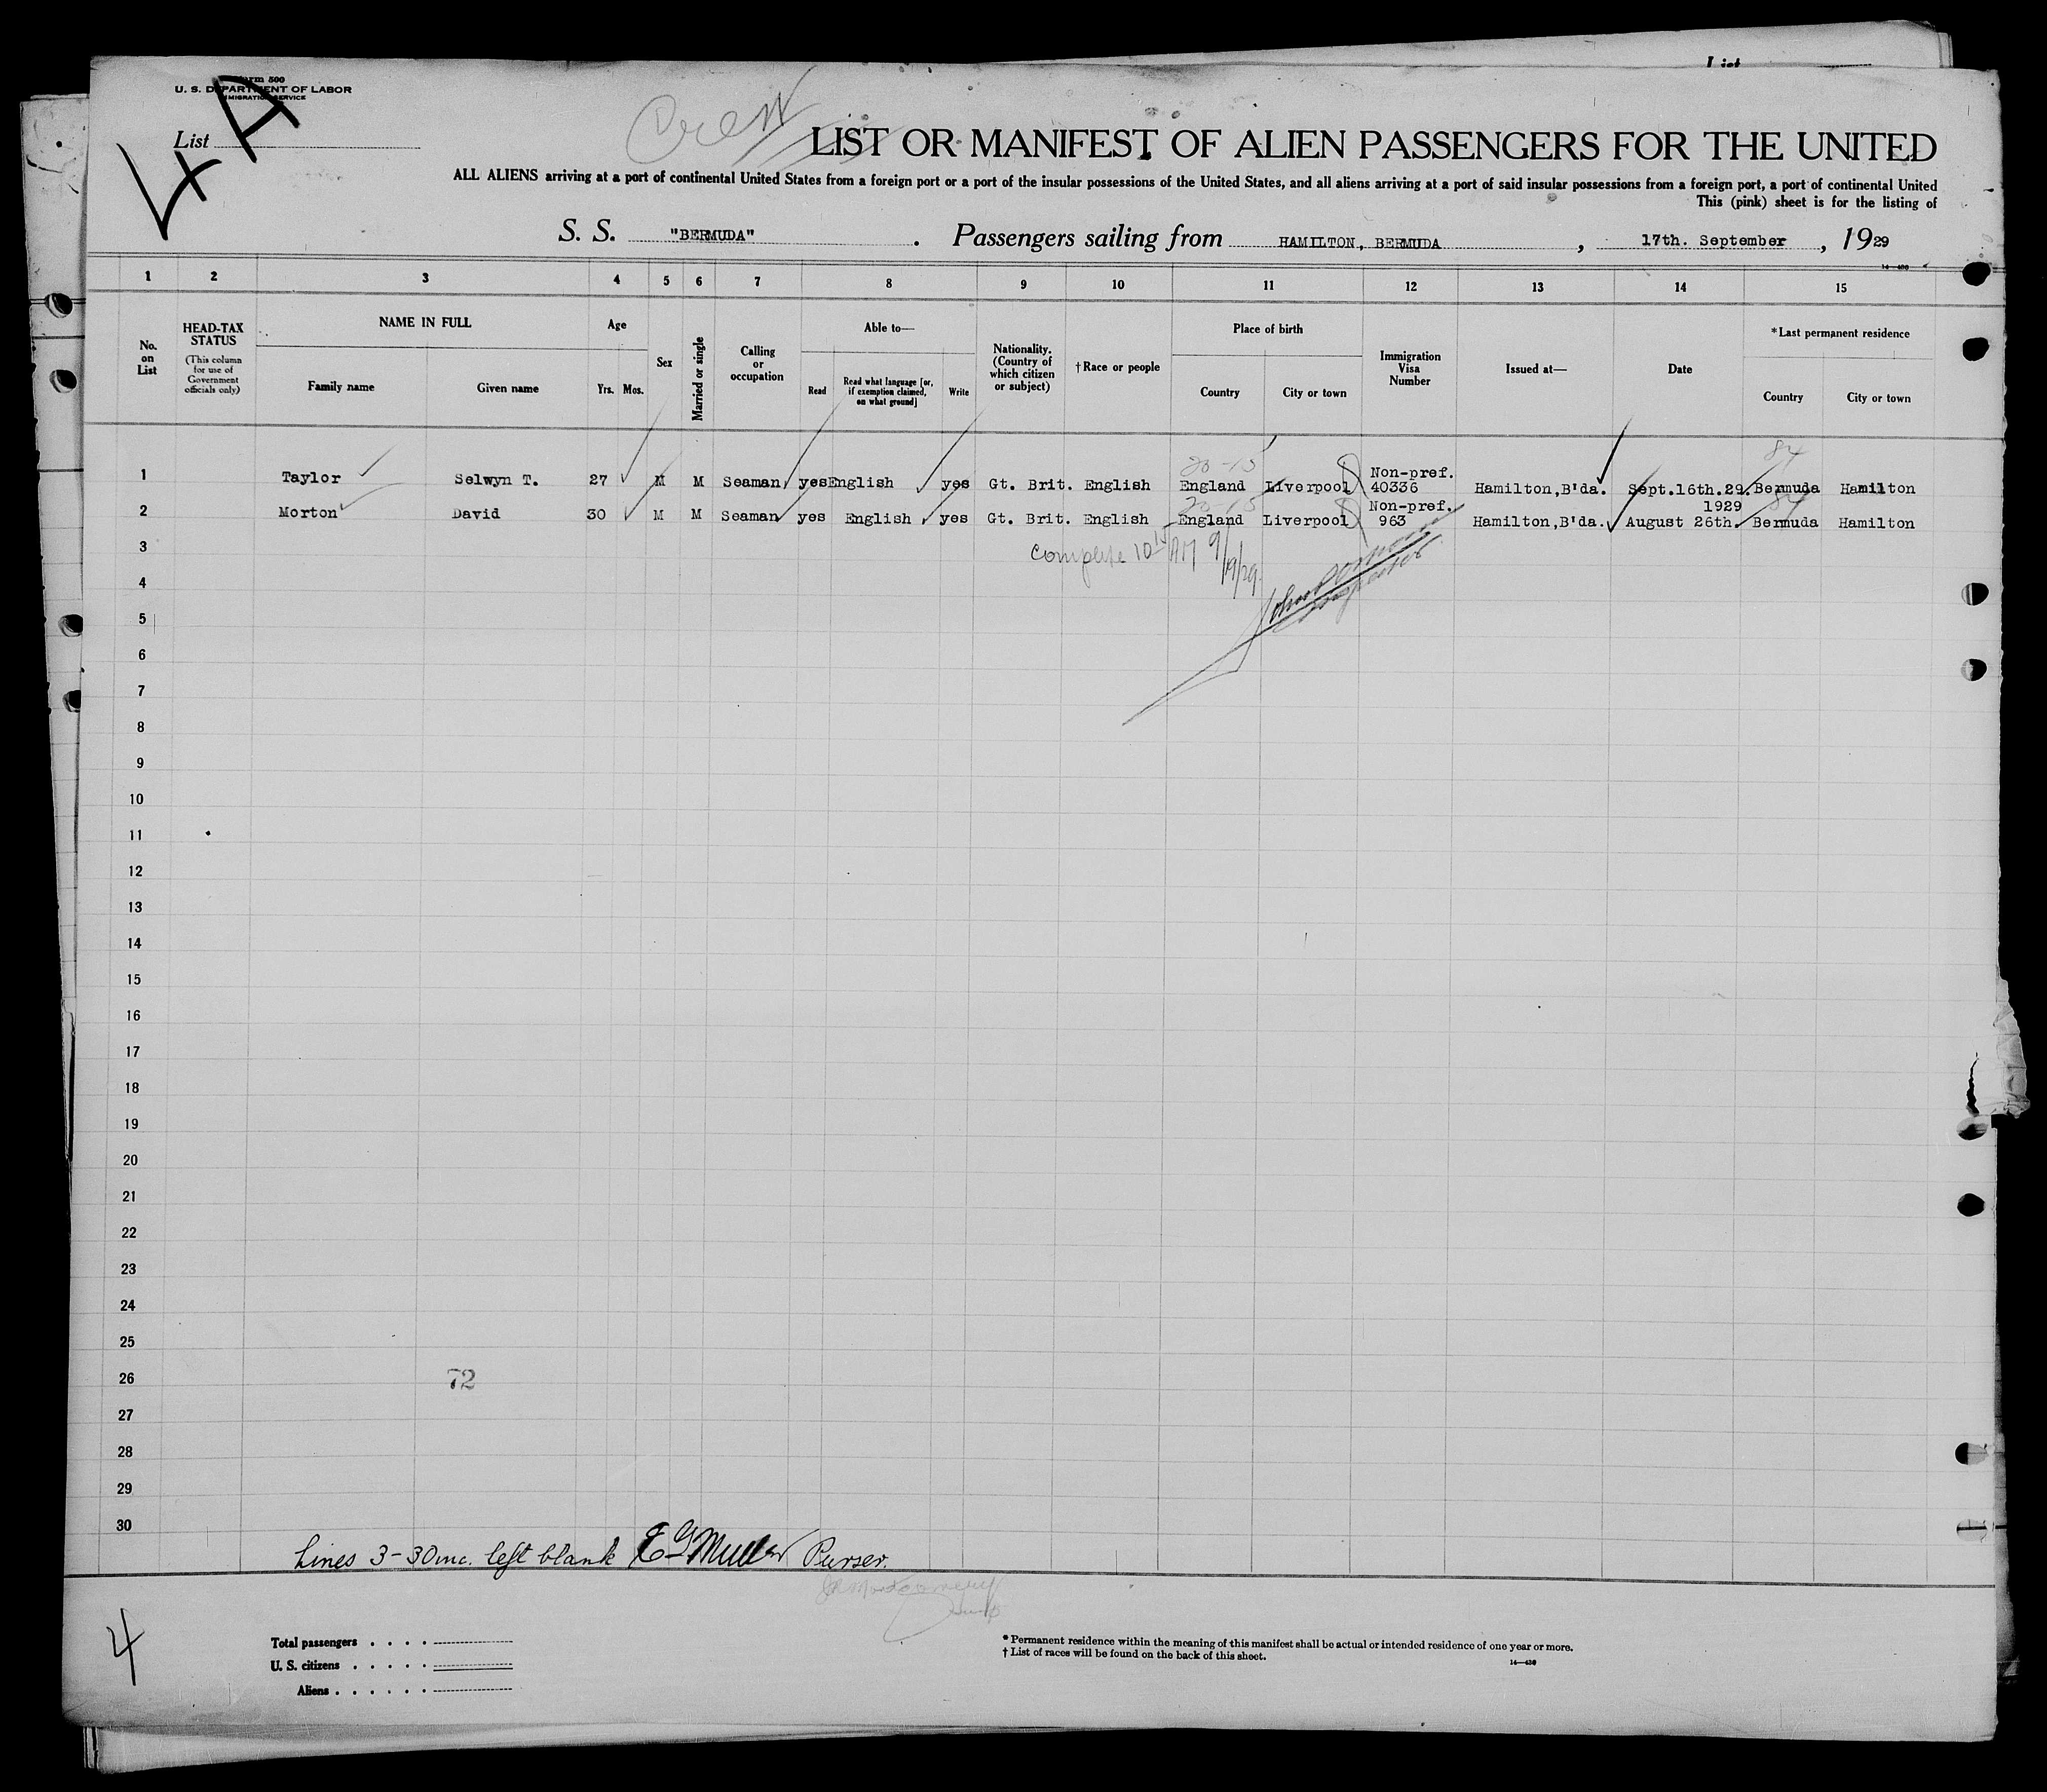 List
Form 500
U. S. DEPARTMENT OF LABOR
IMMIGRATION SERVICE
List
4A
Crew
LIST OR MANIFEST OF ALIEN PASSENGERS FOR THE UNITED
ALL ALIENS arriving at a port of continental United States from a foreign port or a port of the insular possessions of the United States, and all aliens arriving at a port of said insular possessions from a foreign port, a port of continental United
This (pink) sheet is for the listing of
S. S. "BERMUDA" . Passengers sailing from HAMILTON, BERMUDA , 17th. September , 1929
1 2 3 4 5 6 7 8 9 10 11 12 13 14 15
No. on List
HEAD-TAX STATUS
(This column for use of Government officials only)
NAME IN FULL
Family name Given name
Age
Yrs. Mos.
Sex
Married or single
Calling or occupation
Able to—
Read Read what language [or, if exemption claimed, on what ground] Write
Nationality. (Country of which citizen or subject)
†Race or people
Place of birth
Country City or town
Immigration Visa Number
Issued at—
Date
*Last permanent residence
Country City or town
84
20-15 Non-pref.
1 Taylor Selwyn T. 27 M M Seaman yes English yes Gt. Brit. English England Liverpool 40336 Hamilton,B'da. Sept.16th.29. Bermuda Hamilton
20-15 Non-pref. 1929 84
2 Morton David 30 M M Seaman yes English yes Gt. Brit. English England Liverpool 963 Hamilton,B'da. August 26th. Bermuda Hamilton
3
Complete 10 AM 9/19/29.
Inspector
4
5
6
7
8
9
10
11
12
13
14
15
16
17
18
19
20
21
22
23
24
25
26
72
27
28
29
30
Lines 3-30 inc. left blank Purser.
4
Total passengers . . . .
U. S. citizens . . . . .
Aliens . . . . . .
* Permanent residence within the meaning of this manifest shall be actual or intended residence of one year or more.
† List of races will be found on the back of this sheet.